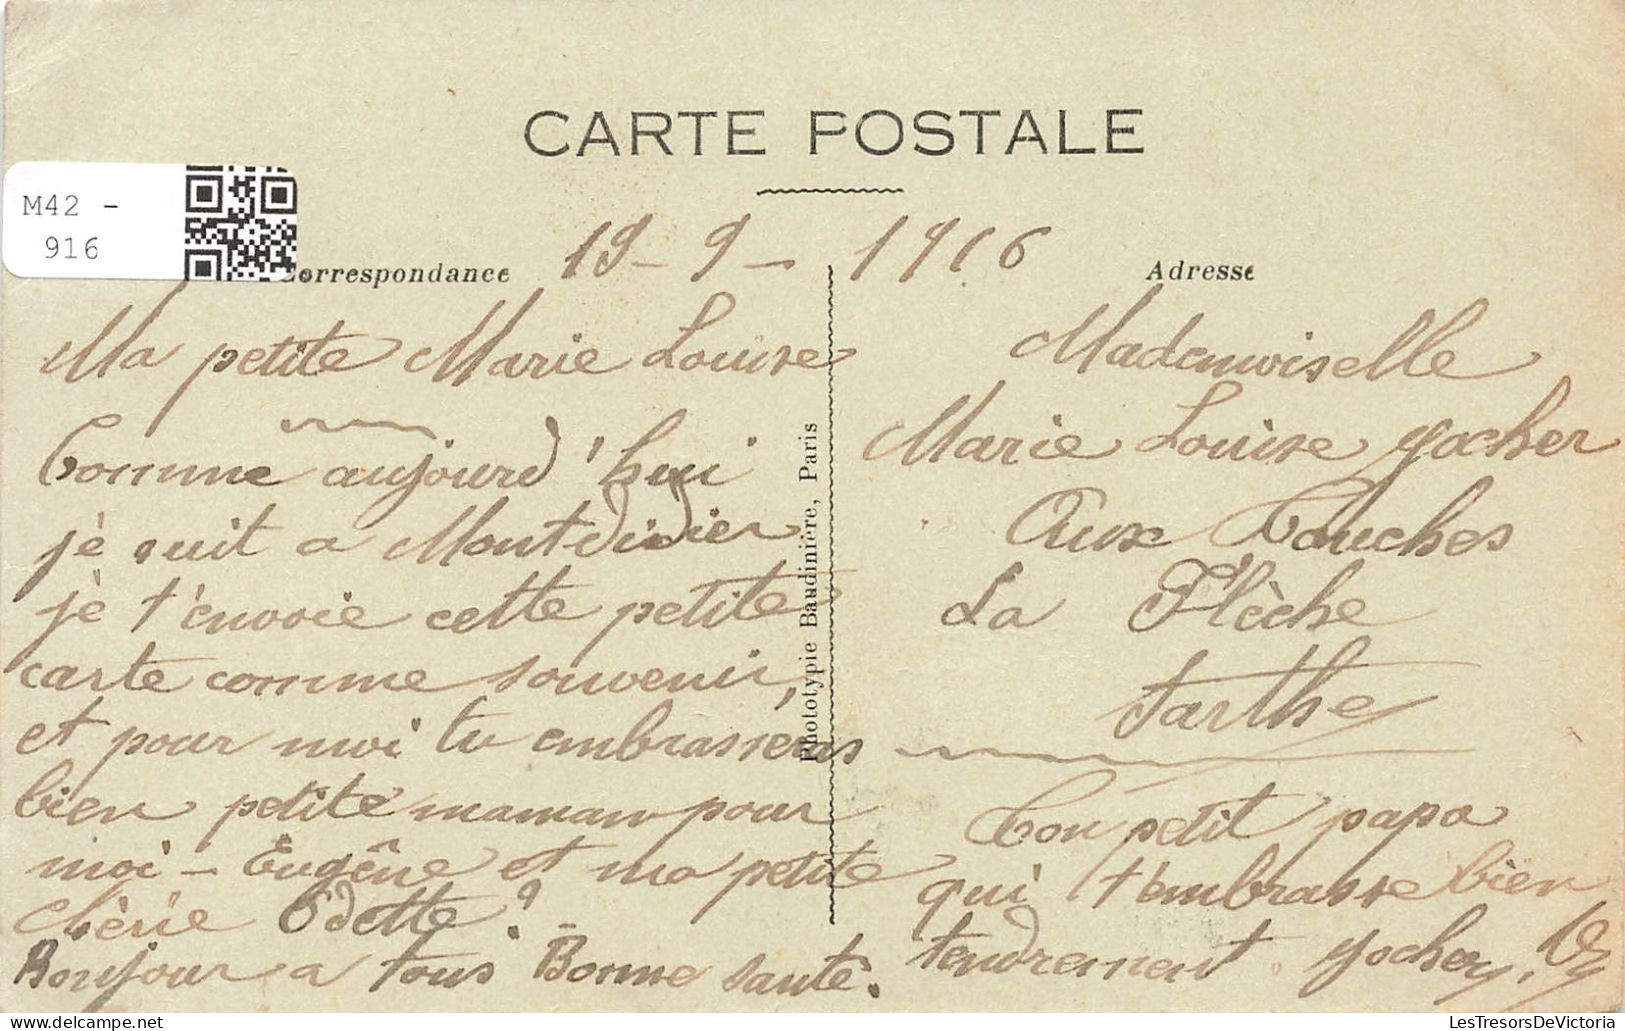 CARTE POSTALE
M42 -
916
Correspondance
19 - 9 - 1916
Adresse
Ma petite Marie Louise
Comme aujourd'hui
jè suit a Montdidier
jè t'envoie cette petite
carte comme souvenir,
et pour moi tu embrasseras
bien petite maman pour
moi - Eugêne et ma petite
chèrie Odette?
Bonjour a tous Bonne santé.
Phototypie Baudinière, Paris
Mademoiselle
Marie Louise Yocher
Aux Couches
La Flèche
Sarthe
Ton petit papa
qui t'embrasse bien
tendrement. Yocher,
delcampe.net
LesTresorsDeVictoria